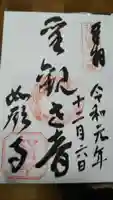 奉拝
令和元年
十二月六日
聖観世音
如願寺